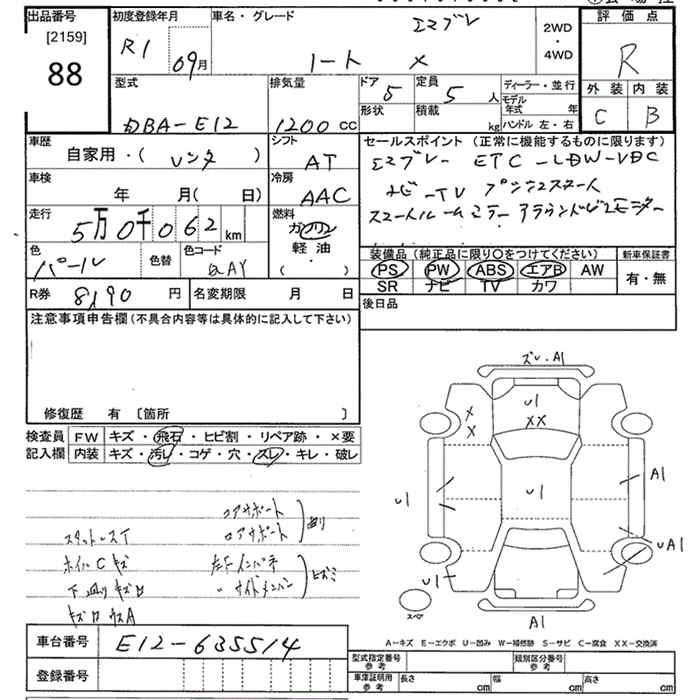 出品番号 初度登録年月 車名・グレード エマブレ 2WD・4WD 評価点
[2159]
88
R1 09月 ノート X R
外装 内装
C B
型式 排気量 ドア 5 定員 5人 ディーラー・並行
形状 積載 kg モデル年式 年
ハンドル 左・右
DBA-E12 1200cc
車歴 シフト セールスポイント (正常に機能するものに限ります)
自家用・( レンタ ) AT エマブレー ETC-LDW-VDC
車検 冷房 ナビ-TV プッシュスタート
年 月( 日) AAC スマートルームミラー アラウンドビューモニター
走行 燃料
5万0千062km ガソリン
軽油
( )
色 色替 色コード
パール QAY
装備品 (純正品に限り○をつけてください) 新車保証書
PS PW ABS エアB AW 有・無
SR ナビ TV カワ
R券 8,190円 名変期限 月 日 後日品
注意事項申告欄 (不具合内容等は具体的に記入して下さい)
修復歴 有 [箇所 ]
検査員 FW キズ・飛石・ヒビ割・リペア跡・×要
記入欄 内装 キズ・汚レ・コゲ・穴・スレ・キレ・破レ
ズレ・A1
U1
XX
X
X
U1
U1
A1
UA1
U1
スペア
A1
コアサポート
ロアサポート
スタットレスT
ホイルCキズ 左F インパネ
下廻りキズ サイドメンバー
A-キズ E-エクボ U-凹み W-補修跡 S-サビ C-腐食 XX-交換済
車台番号 E12-635514
登録番号
型式指定番号 参考 類別区分番号 参考
車庫証明用 参考 長さ cm 幅 cm 高さ cm